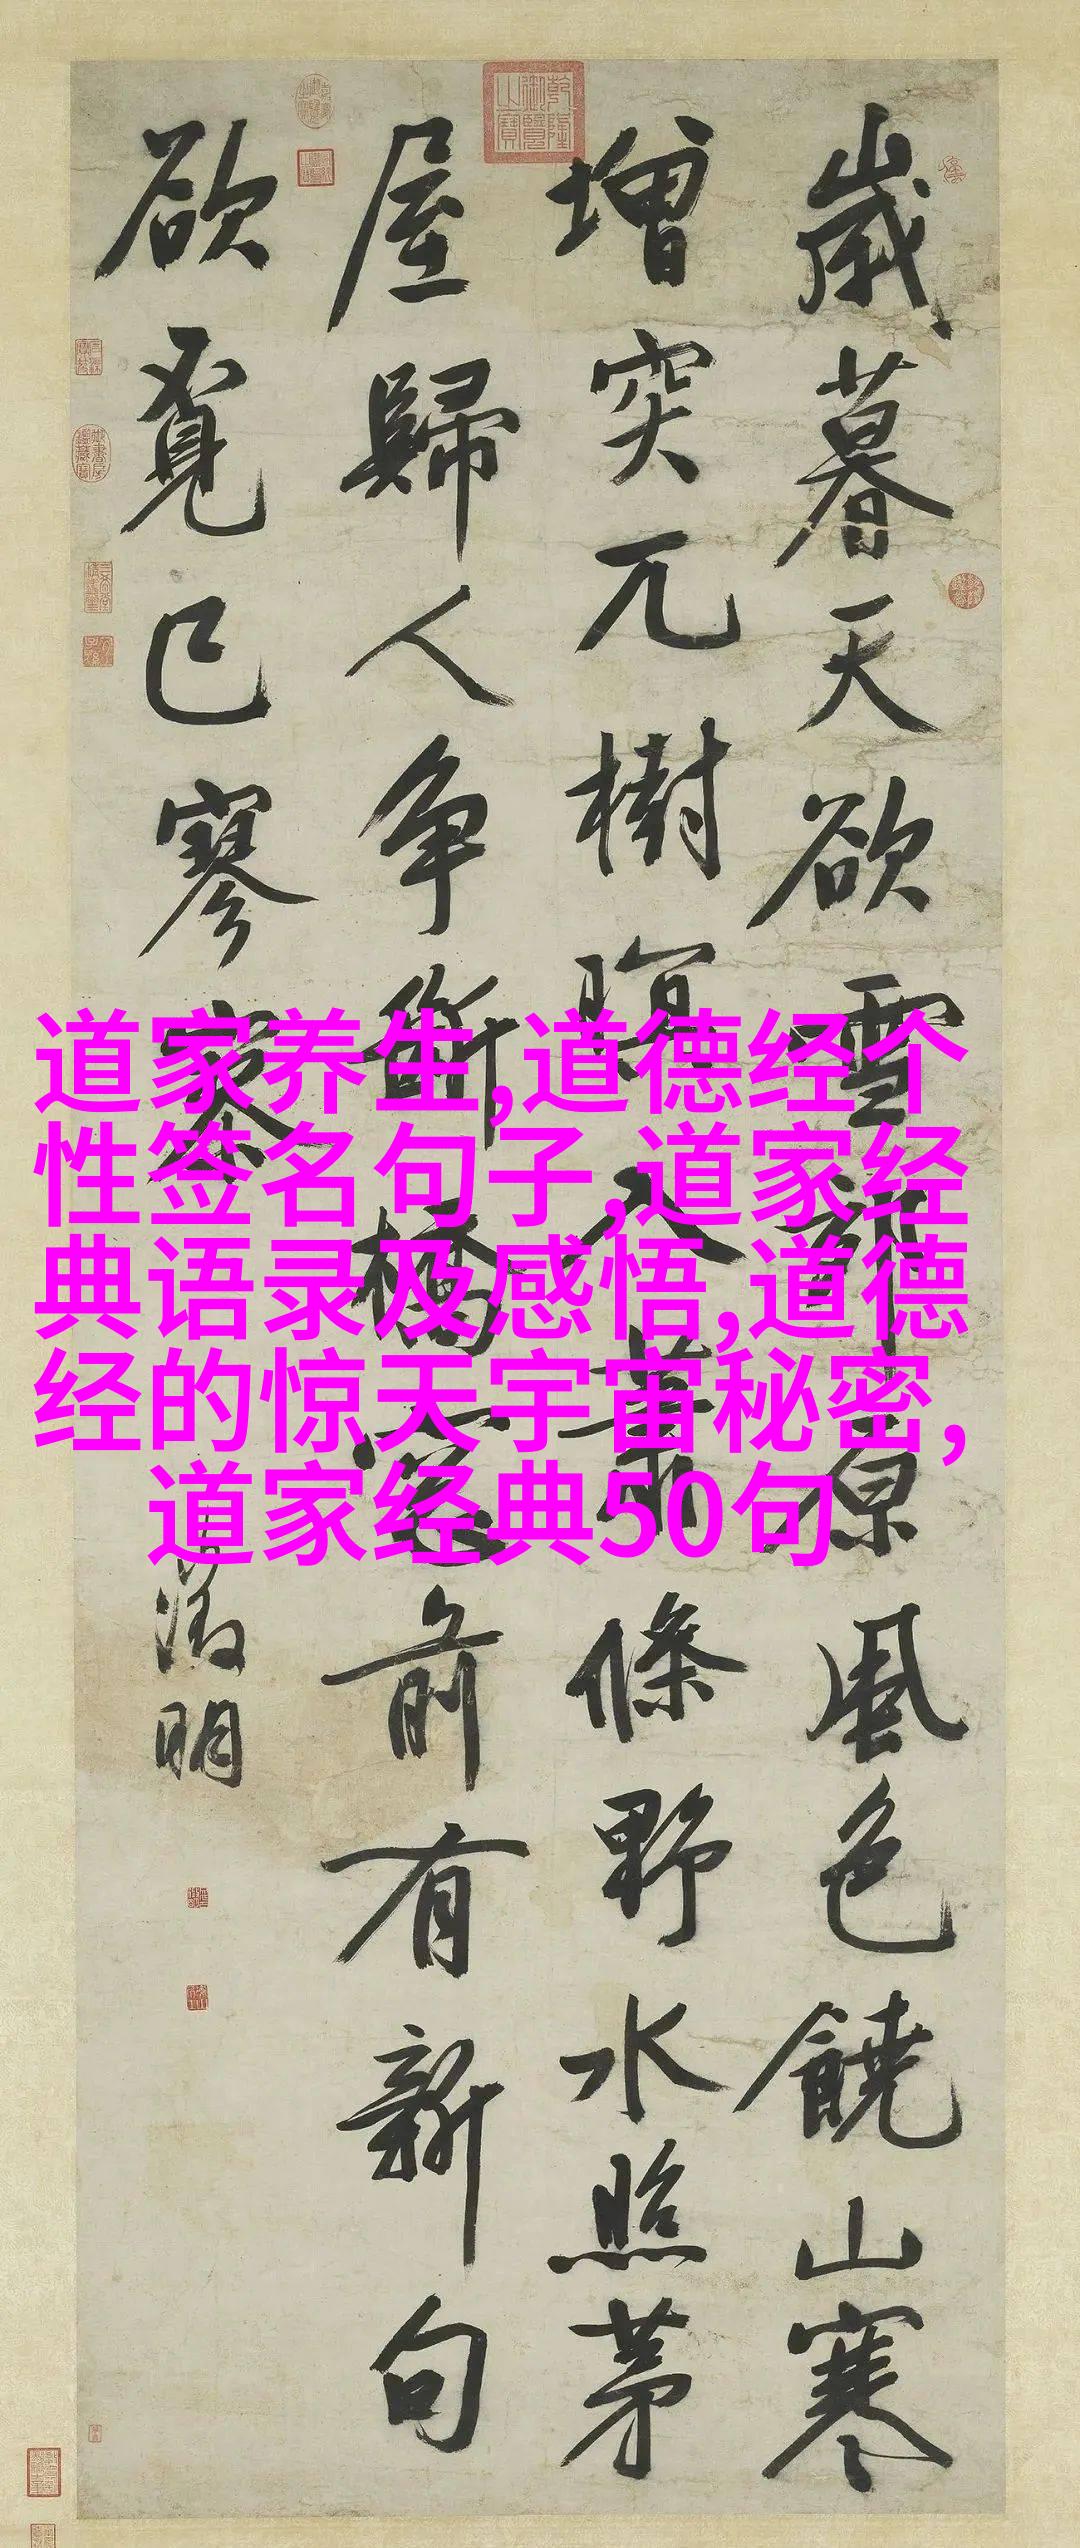 歲暮天欲雪原風色饒山寒
增突兀樹暝入蕭條野水照茅
屋歸人爭斷橋窓前有新句
欲覔已寥寥
徵明
乾隆御覽之寶
道家养生,道德经个
性签名句子,道家经
典语录及感悟,道德
经的惊天宇宙秘密,
道家经典50句